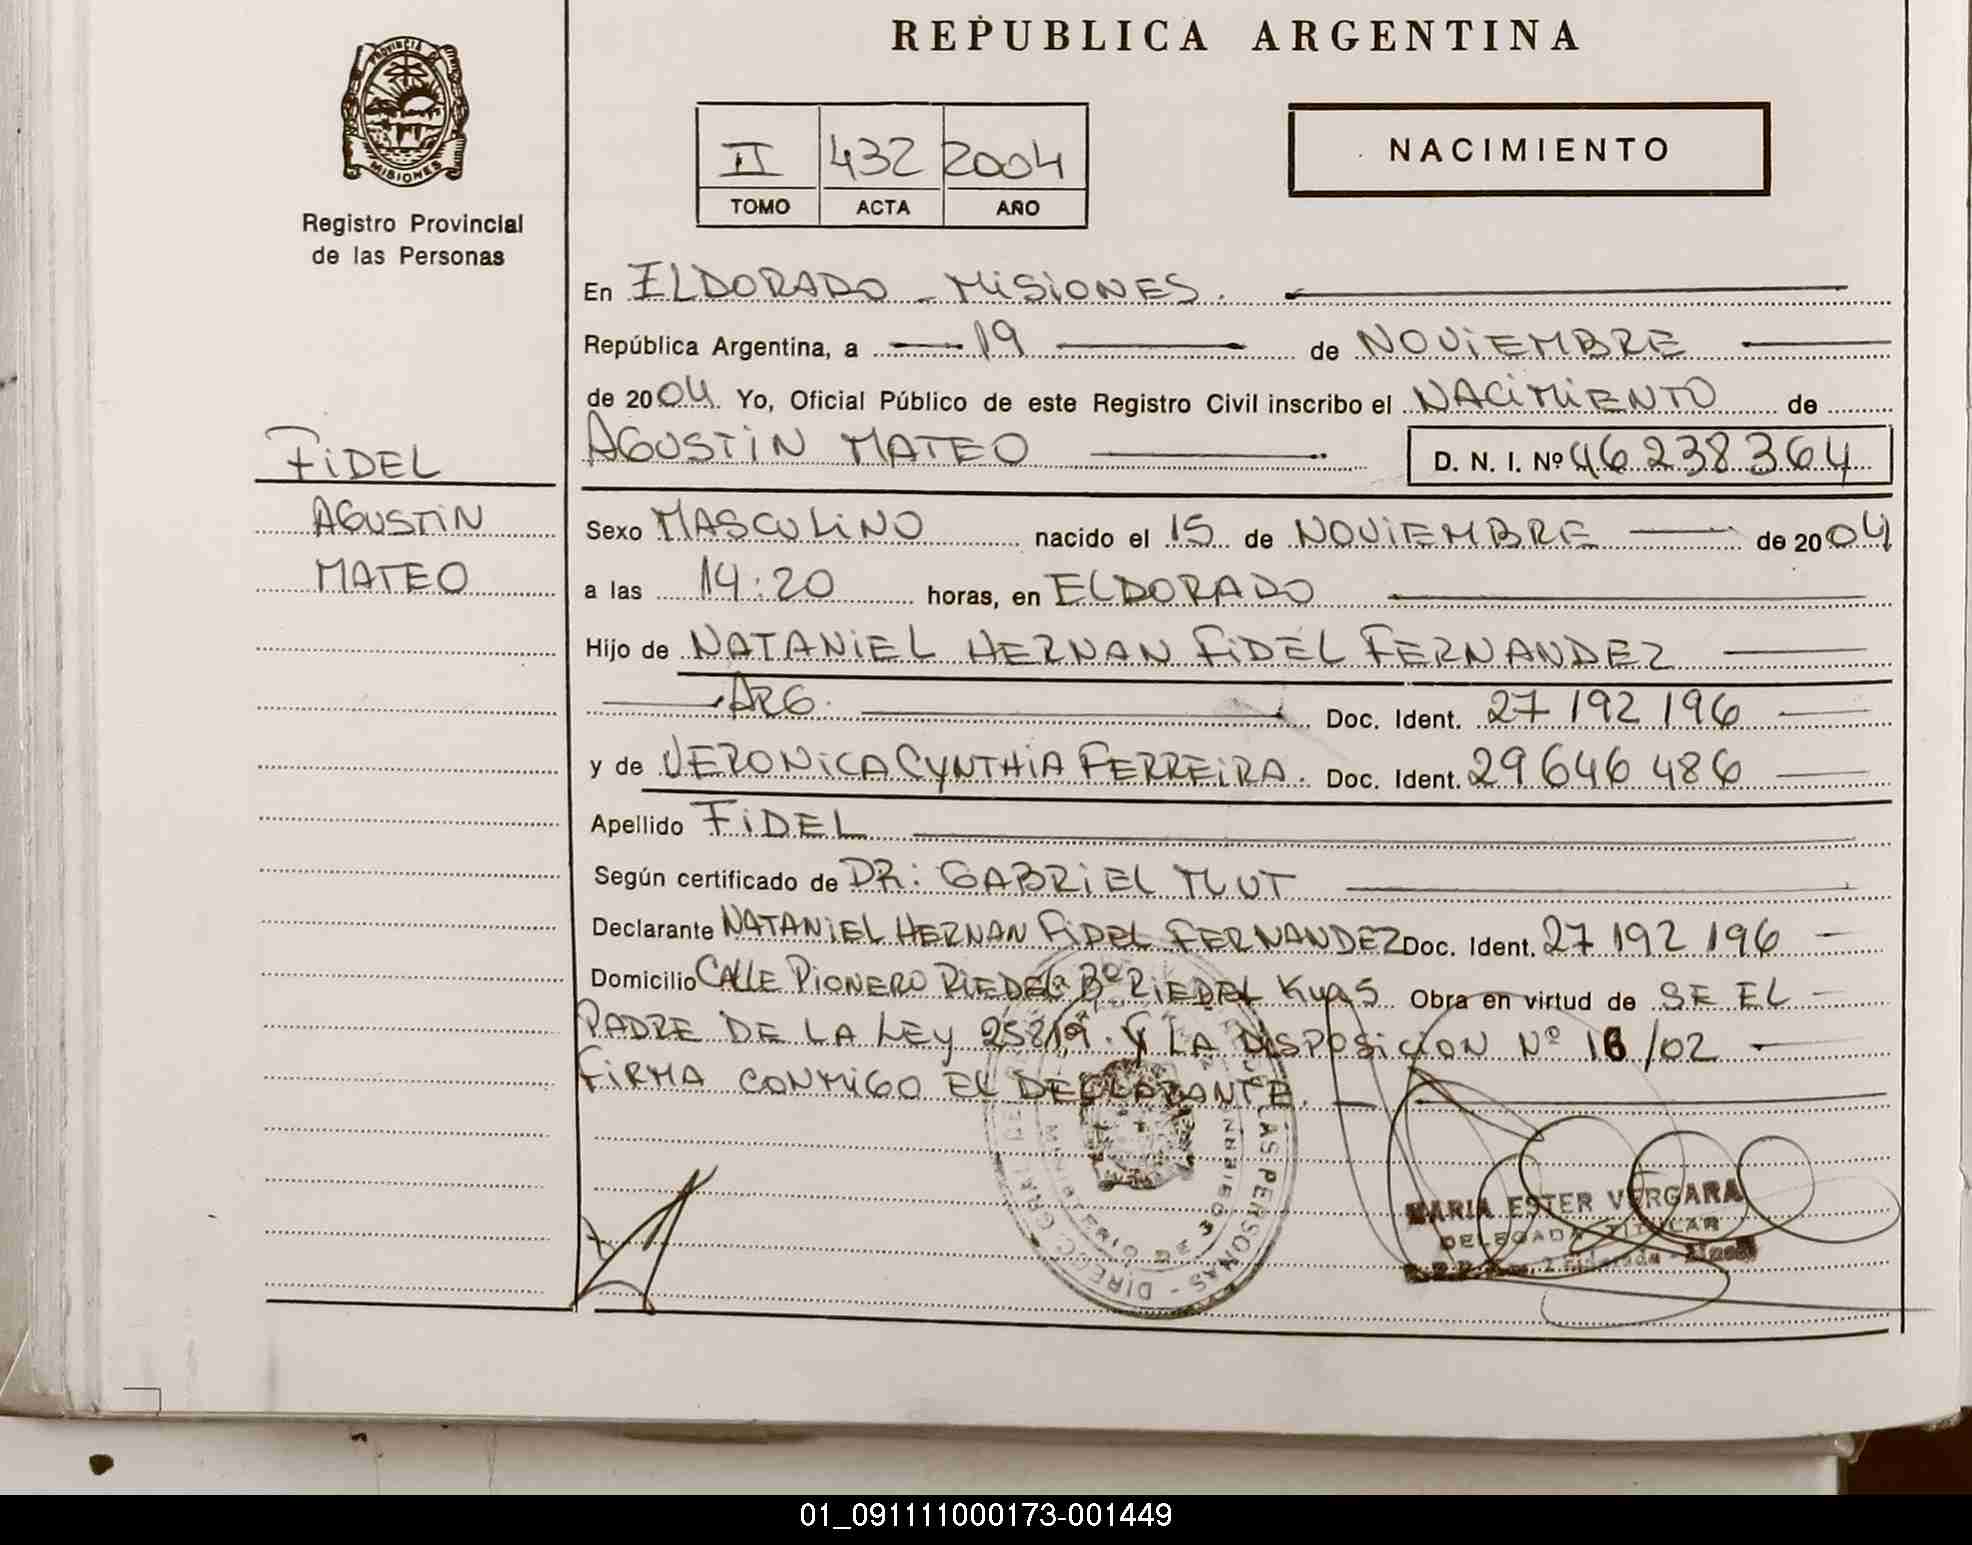 REPUBLICA ARGENTINA
PROVINCIA DE
MISIONES
Registro Provincial
de las Personas
II 432 2004
TOMO ACTA AÑO
NACIMIENTO
En ELDORADO - MISIONES.
República Argentina, a 19 de NOVIEMBRE
de 2004 Yo, Oficial Público de este Registro Civil inscribo el NACIMIENTO de
AGUSTIN MATEO D. N. I. Nº 46 238 364
FIDEL
AGUSTIN
MATEO
Sexo MASCULINO nacido el 15 de NOVIEMBRE de 2004
a las 14:20 horas, en ELDORADO
Hijo de NATANIEL HERNAN FIDEL FERNANDEZ
ARG. Doc. Ident. 27 192 196
y de VERONICA CYNTHIA FERREIRA. Doc. Ident. 29 646 486
Apellido FIDEL
Según certificado de DR: GABRIEL
Declarante NATANIEL HERNAN FIDEL FERNANDEZ Doc. Ident. 27 192 196
Domicilio CALLE PIONERO RIEDEL Bº RIEDEL Obra en virtud de SE EL
PADRE DE LA LEY 25819. Y LA DISPOSICION Nº 16/02
FIRMA CONMIGO EL DECLARANTE.
LAS PERSONAS - DIREC. GRAL. DE
MINISTERIO DE GOBIERNO
MARIA ESTER VERGARA
DELEGADA TITULAR
01_091111000173-001449